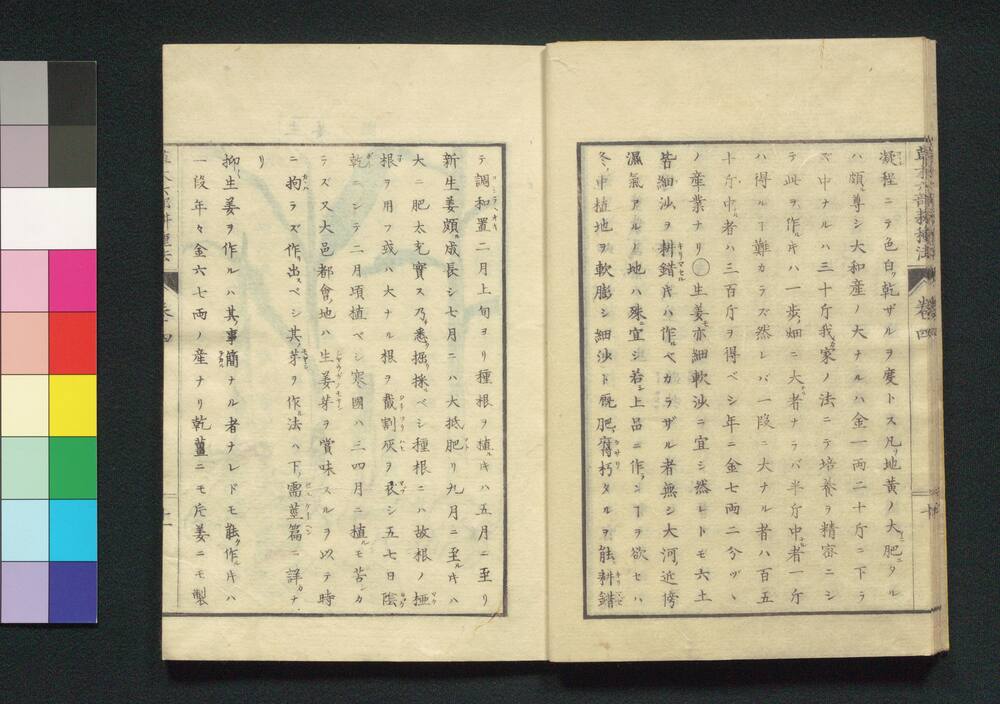 草木六部耕種法 巻十四
凝程ニテ色白ク乾ザルヲ度トス凡ソ地黄ノ大ニ肥タル
ハ頗ル尊シ大和産ノ大ナルハ金一両ニ十斤ニ下ラ
ズ中ナルハ三十斤我家ノ法ニテ培養ヲ精密ニシ
テ此ヲ作ルキハ一歩ノ畑ニ大ナル者ナラバ半斤中ナル者一斤
ハ得ルヿ難カラズ然レバ一段ニ大ナル者ハ百五
十斤中ナル者ハ三百斤ヲ得ベシ年ニ金七両二分ヅヽ
ノ産業ナリ〇生姜モ亦細軟沙ニ宜シ然レトモ六土
皆細沙ヲ耕錯キハ作ルベカラザル者無シ大河ノ近傍
濕氣アルノ地ハ殊ニ宜シ若シ上品ニ作ンヿヲ欲セハ
冬中植地ヲ軟膨シ細沙ト厩肥ノ腐朽タルヲ能ク耕錯
テ調和置二月上旬ヨリ種根ヲ植ルキハ五月ニ至リ
新生姜頗ル成長シ七月ニハ大抵肥リ九月ニ至ルキハ
大ニ肥太充實ス乃チ悉ク掘リ採ベシ種根ニハ故根ノ極
根ヲ用フ或ハ大ナル根ヲ截割灰ヲ衣シ五七日陰
乾ニシテ二月頃植ベシ寒國ハ三四月ニ植ルモ苦シカ
ラズス大邑都會ノ地ハ生姜芽ヲ賞味スルヲ以テ時
ニ拘ラズ作リ出スベシ其芽ヲ作ル法ハ下ノ需莖篇ニ詳カナ
リ
抑生姜ヲ作ルハ其事簡ナル者ナレドモ能ク作ルキハ
一段年々金六七両ノ産ナリ乾薑ニモ片姜ニモ製